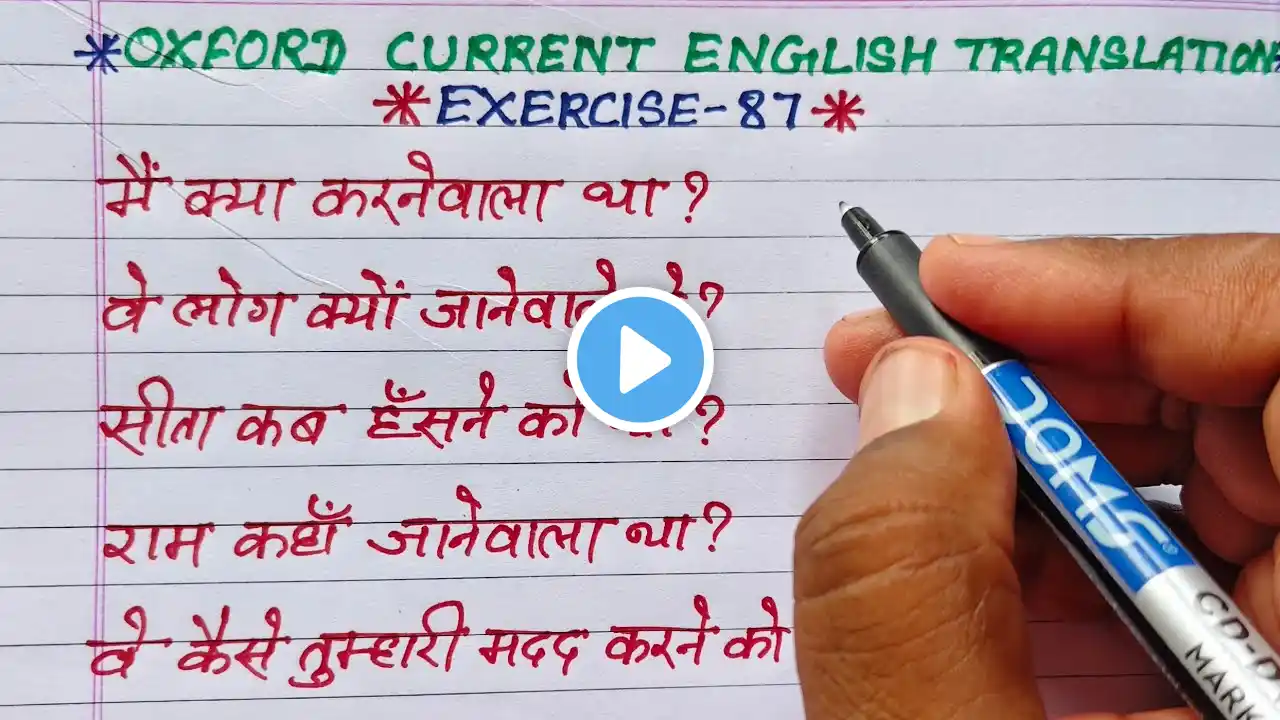 *OXFORD CURRENT ENGLISH TRANSLATION*
*EXERCISE-87*
मैं क्या करनेवाला था?
वे लोग क्यों जानेवाले ?
सीता कब हँसने को ?
राम कहाँ जानेवाला था?
वे कैसे तुम्हारी मदद करने को
DOMS
CD-D
MARK